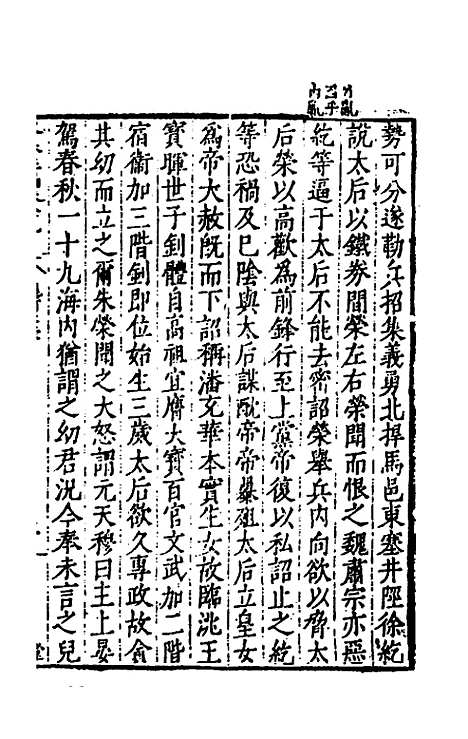 勢可分遂勒兵招集義勇北捍馬邑東塞井陘徐紇
說太后以鐵券間榮左右榮聞而恨之魏肅宗亦惡
紇等逼于太后不能去密詔榮舉兵内向欲以脅太
后榮以高歡為前鋒行至上黨帝復以私詔止之紇
等恐禍及己陰與太后謀酖帝帝暴殂太后立皇女
為帝大赦旣而下詔稱潘充華本實生女故臨洮王
寶暉世子釗體自高祖宜膺大寶百官文武加二階
宿衛加三階釗即位始生三歲太后欲久專政故貪
其幼而立之爾朱榮聞之大怒謂元天穆曰主上晏
駕春秋一十九海内猶謂之幼君況今奉未言之兒